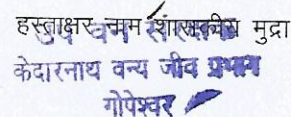 हस्ताक्षर नाम शासकीय मुद्रा
केदारनाथ वन्य जीव प्रभाग
गोपेश्वर